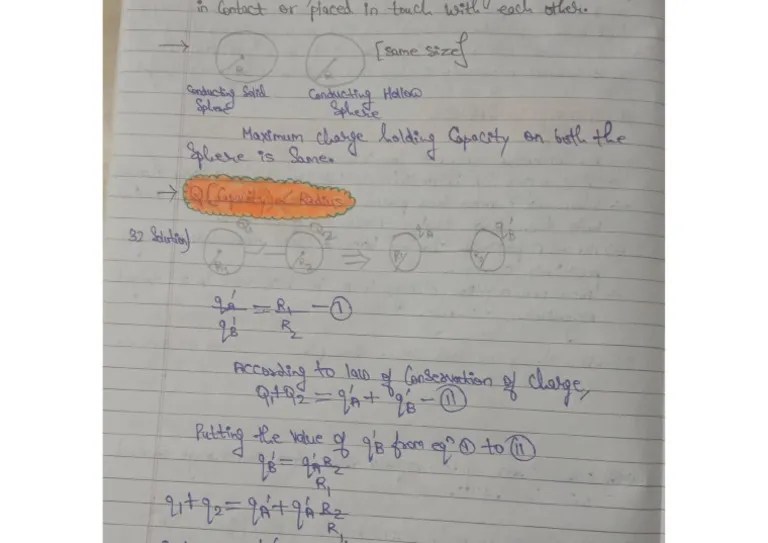 in contact or placed in touch with each other.
→ [same size]
Conducting Solid Sphere
Conducting Hollow Sphere
Maximum charge holding Capacity on both the
Sphere is Same.
→ Q (Capacity) ∝ Radius
32 Solution)
Q₁ Q₂ ⇒ q'A q'B
R₁ R₂
q'A/q'B = R₁/R₂ — (I)
According to law of Conservation of charge,
Q₁+Q₂ = q'A + q'B — (II)
Putting the value of q'B from eqⁿ (I) to (II)
q'B = q'A R₂/R₁
q₁+q₂ = q'A + q'A R₂/R₁